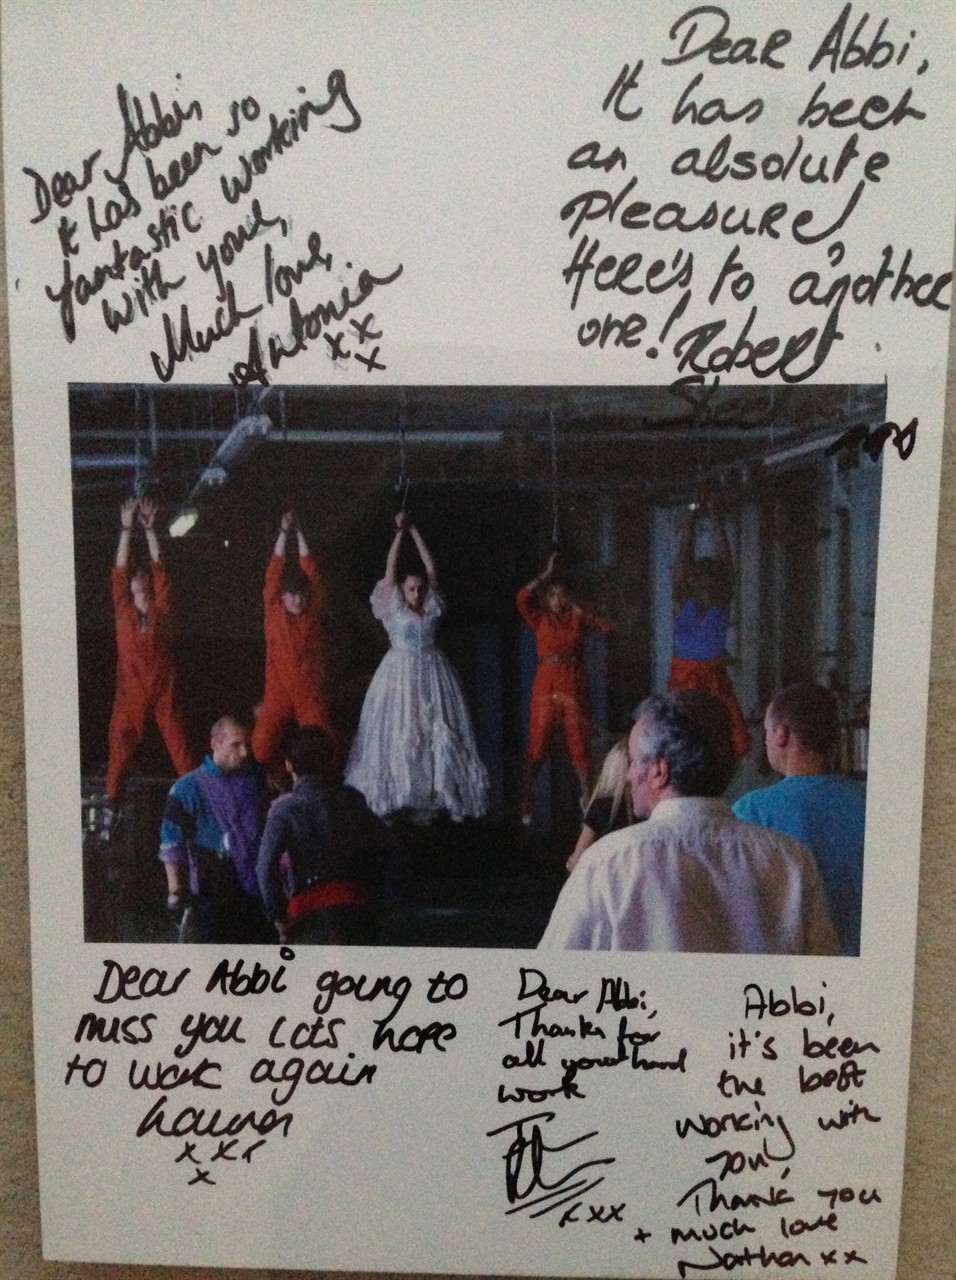 Dear Abbi,
It has been so
fantastic working
with you,
Much love,
Antonia
xxx
Dear Abbi,
It has been
an absolute
pleasure,
Here's to another
one! Robert
Dear Abbi going to
miss you lots hope
to work again
Lauren
xxx
x
Dear Abbi,
Thanks for
all your hard
work
xxx
Abbi,
it's been
the best
working with
you,
Thank you
+ much love
Nathan xx